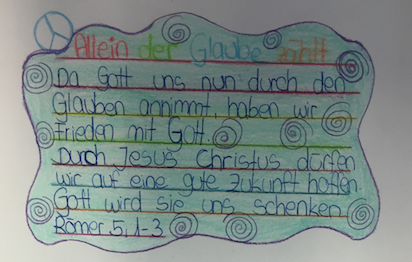 Allein der Glaube zählt
Da Gott uns nun durch den
Glauben annimmt, haben wir
Frieden mit Gott.
Durch Jesus Christus dürfen
wir auf eine gute Zukunft hoffen.
Gott wird sie uns schenken
Römer 5, 1-3